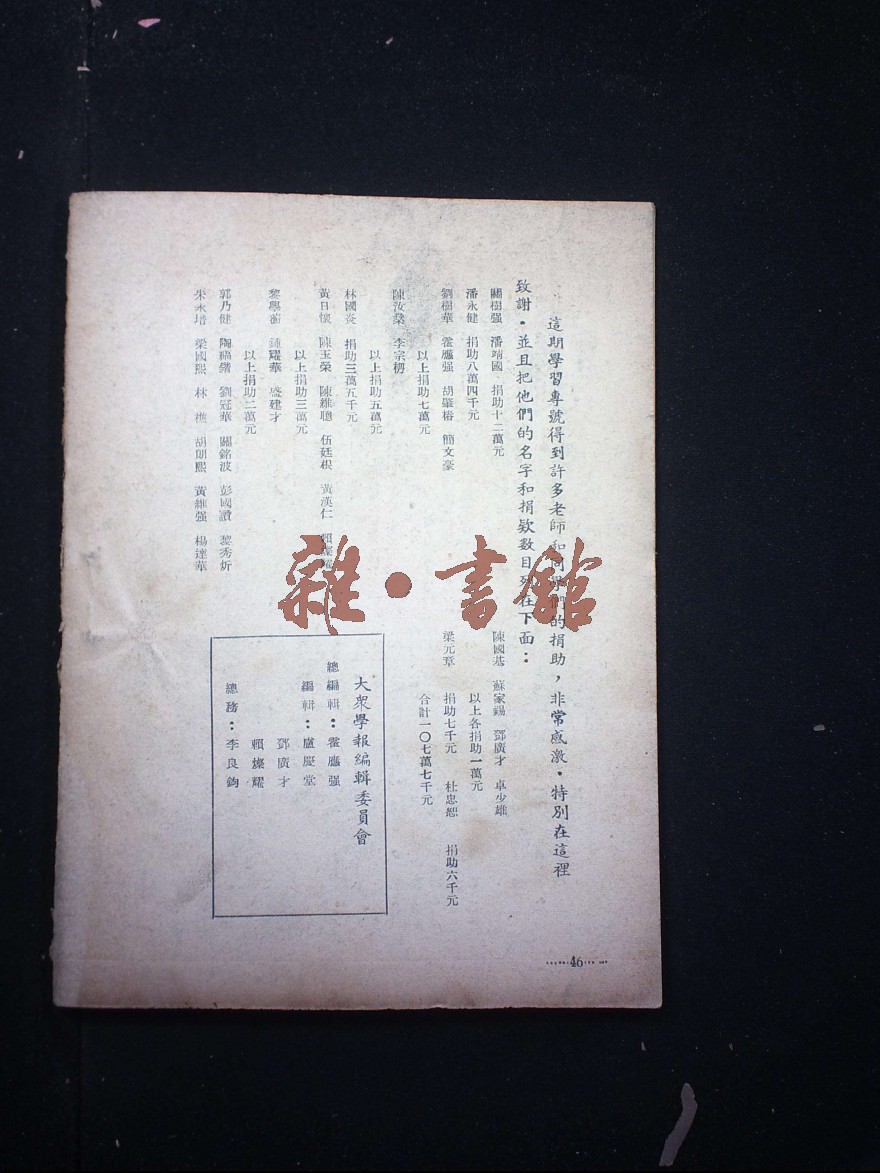 這期學習專號得到許多老師和同學們的捐助，非常感激．特別在這裡
致謝．並且把他們的名字和捐欵數目列在下面：
關樹强　潘靖國　捐助十二萬元
潘永健　捐助八萬四千元
劉樹華　霍應强　胡肇楷　簡文豪
以上捐助七萬元
陳汝棠　李宗枬
以上捐助五萬元
林國炎　捐助三萬五千元
黃日懷　陳玉榮　陳維聰　伍廷根　黃漢仁　賴燦耀
以上捐助三萬元
黎學蘅　鍾耀華　盛建才
以上捐助二萬元
郭乃健　陶福鏘　劉冠華　關銘波　彭國讚　黎秀炘
朱永培　梁國熙　林樵　胡朗熙　黃維强　楊達華
陳國基　蘇家錫　鄧廣才　卓少雄
以上各捐助一萬元
梁元章　捐助七千元　杜忠恕　捐助六千元
合計一〇七萬七千元
大衆學報編輯委員會
總編輯：霍應强
編輯：盧慶堂
鄧廣才
賴燦耀
總務：李良鈞
46
雜・書館